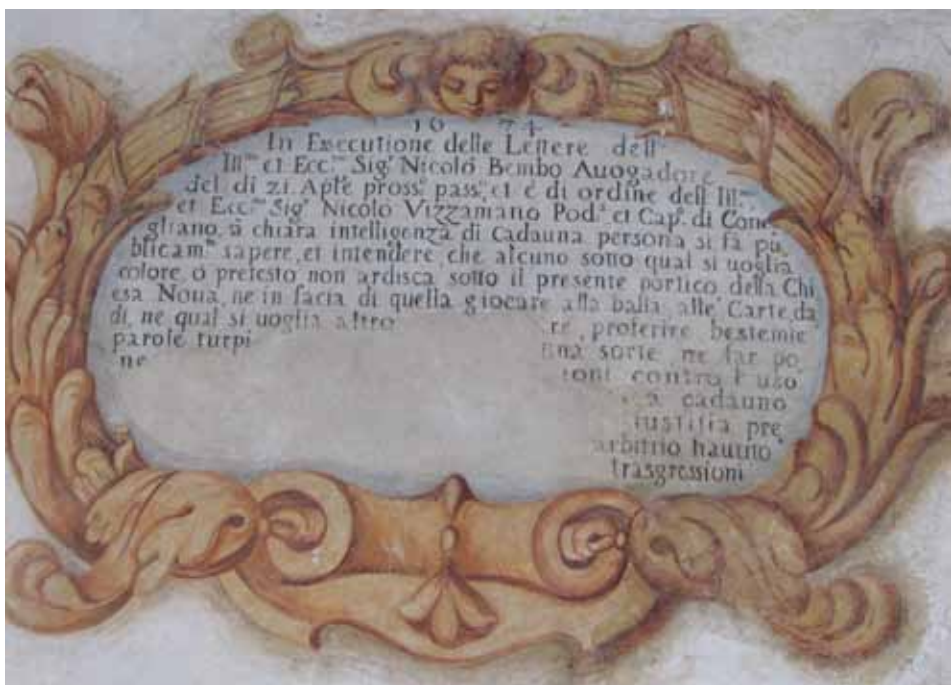 16 74
In Essecutione delle Lettere dell'
Ill.mo et Ecc.mo Sig.r Nicolò Bembo Auogadore
del di 21. Aple pross.o pass.o, et è di ordine dell' Ill.mo
et Ecc.mo Sig.r Nicolò Vizzamano Pod.a et Cap.o di Cone
gliano, à chiara intelligenza di cadauna persona si fà pu
blicam.te sapere, et intendere che alcuno sotto qual si uoglia
colore, ò pretesto non ardisca sotto il presente portico della Chi
esa Noua, ne in facia di quella giocare alla balla, alle Carte, da
di, ne qual si uoglia altro re, proferire bestemie
parole turpi una sorte ne far po
ne ioni contro l'uso
a cadauno
iustitia pre
arbitrio hauuto
trasgressioni